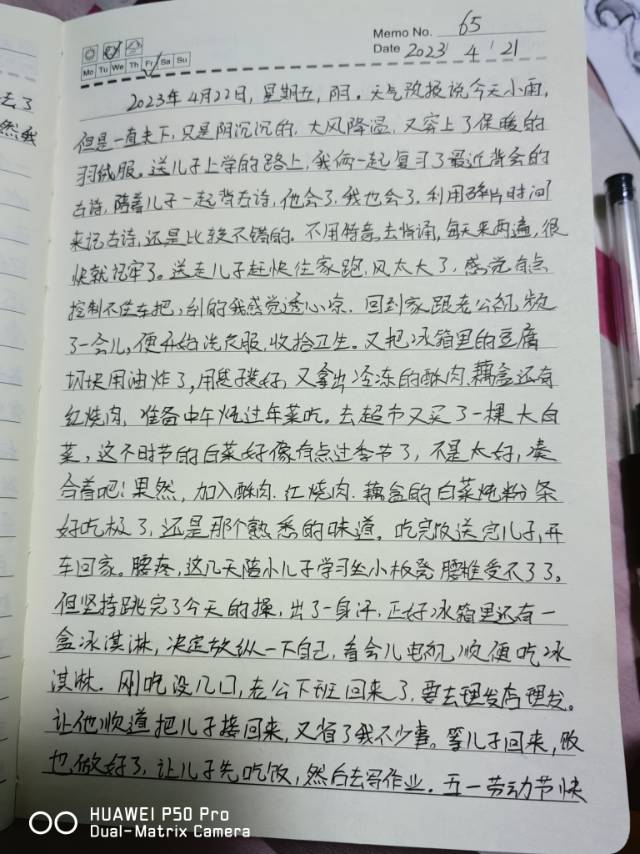 Memo No. 65
Date 2023 4 21
Mo Tu We Th Fr Sa Su
去了
然我
2023年4月22日,星期五,阴。天气预报说今天小雨,
但是一直未下,只是阴沉沉的,大风降温,又穿上了保暖的
羽绒服。送儿子上学的路上,我俩一起复习了最近背会的
古诗,随着儿子一起背古诗,他会了,我也会了。利用碎片时间
来记古诗,还是比较不错的。不用特意去背诵,每天来两遍,很
快就记牢了。送走儿子赶快往家跑,风太大了,感觉有点
控制不住车把,刮的我感觉透心凉。回到家跟老公视频
了一会儿,便开始洗衣服,收拾卫生。又把冰箱里的豆腐
切块用油炸了,用袋装好,又拿出冷冻的酥肉、藕盒还有
红烧肉,准备中午炖过年菜吃。去超市又买了一棵大白
菜,这个时节的白菜好像有点过季节了,不是太好,凑
合着吧!果然,加入酥肉、红烧肉、藕盒的白菜炖粉条
好吃极了,还是那个熟悉的味道。吃完饭送完儿子,开
车回家。腰疼,这几天陪小儿子学习坐小板凳腰椎受不了了。
但坚持跳完了今天的操,出了一身汗,正好冰箱里还有一
盒冰淇淋,决定放纵一下自己,看会儿电视,顺便吃冰
淇淋。刚吃没几口,老公下班回来了,要去理发店理发。
让他顺道把儿子接回来,又省了我不少事。等儿子回来,饭
也做好了,让儿子先吃饭,然后去写作业。五一劳动节快
HUAWEI P50 Pro
Dual-Matrix Camera